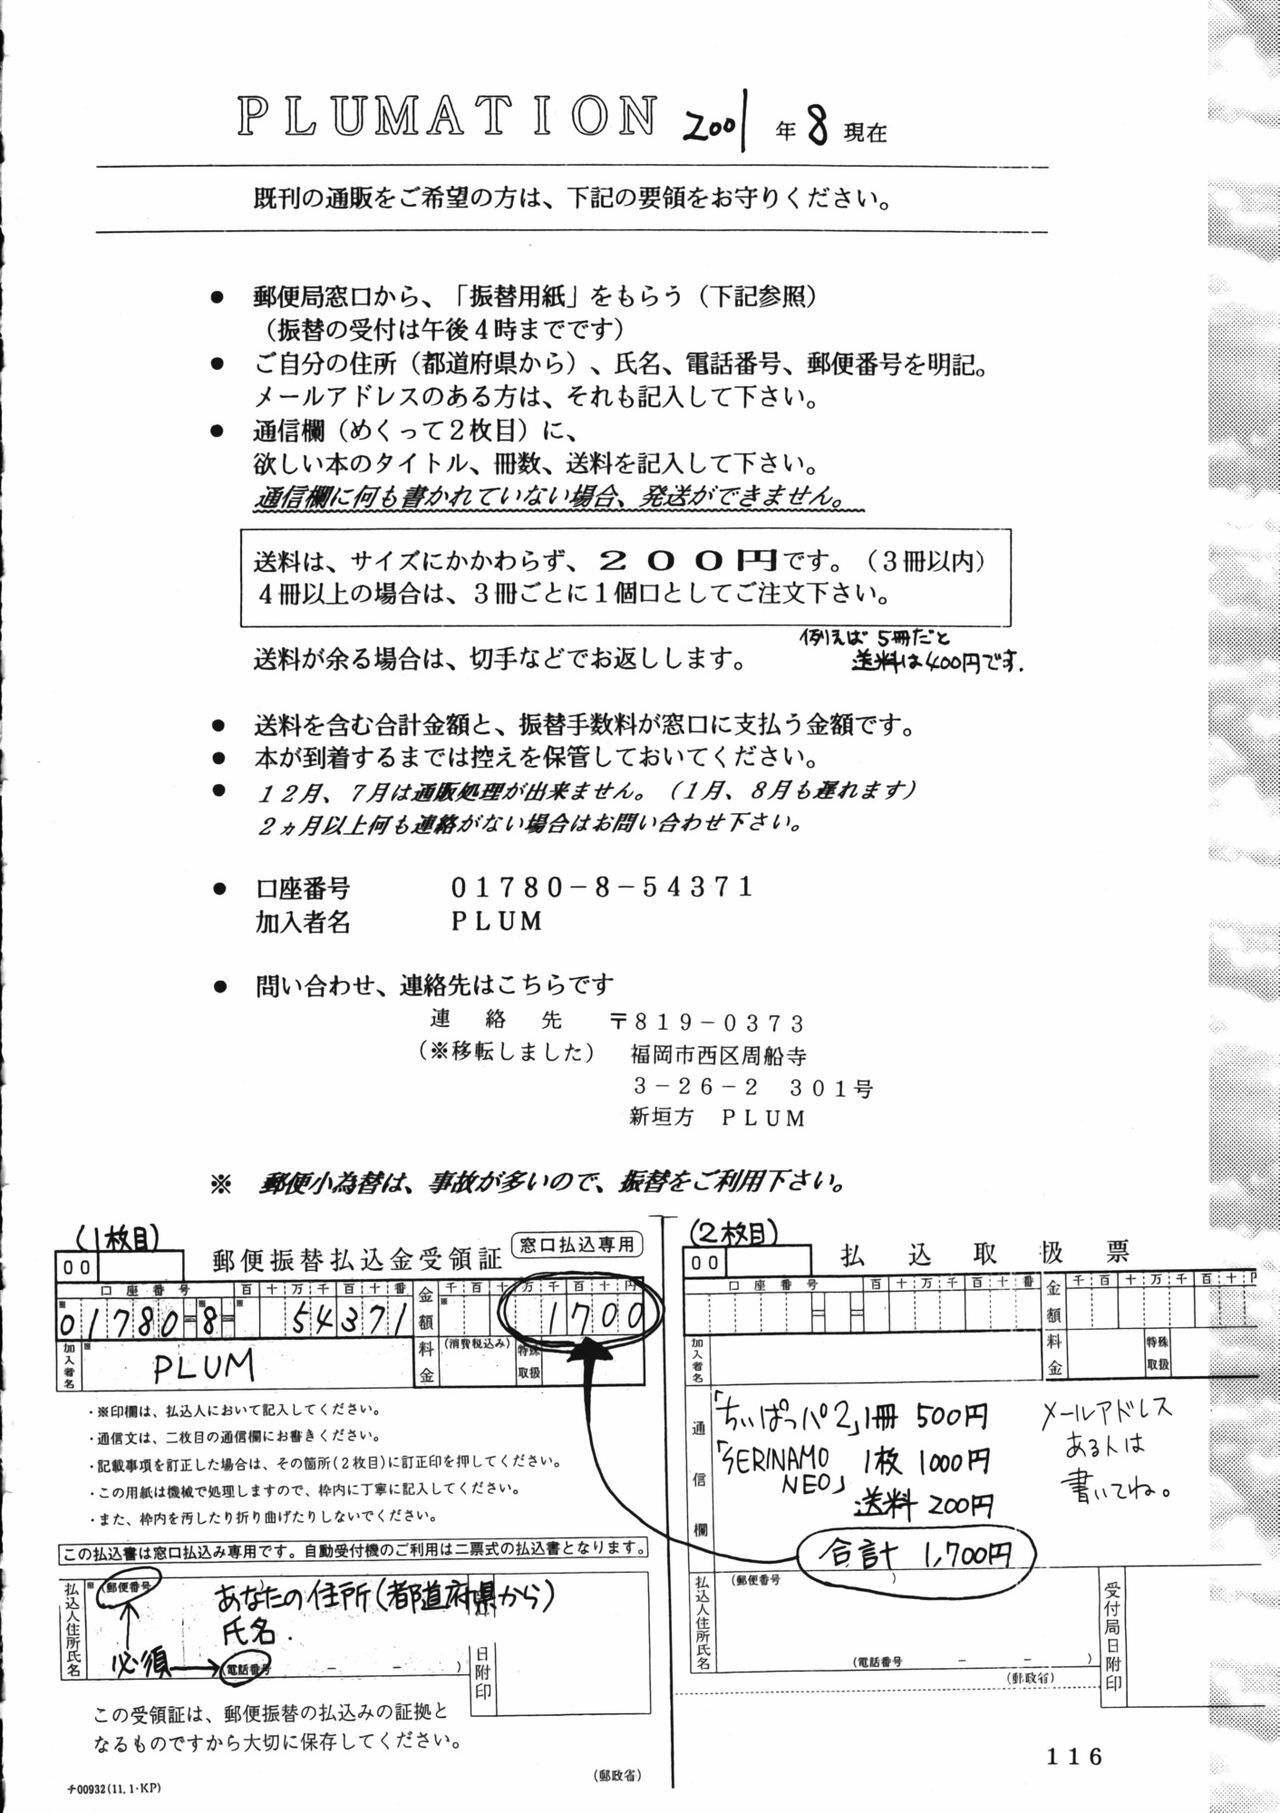 PLUMATION 2001年8現在
既刊の通販をご希望の方は、下記の要領をお守りください。
● 郵便局窓口から、「振替用紙」をもらう（下記参照）
（振替の受付は午後４時までです）
● ご自分の住所（都道府県から）、氏名、電話番号、郵便番号を明記。
メールアドレスのある方は、それも記入して下さい。
● 通信欄（めくって２枚目）に、
欲しい本のタイトル、冊数、送料を記入して下さい。
通信欄に何も書かれていない場合、発送ができません。
送料は、サイズにかかわらず、２００円です。（３冊以内）
４冊以上の場合は、３冊ごとに１個口としてご注文下さい。
例えば 5冊だと
送料は400円です.
送料が余る場合は、切手などでお返しします。
● 送料を含む合計金額と、振替手数料が窓口に支払う金額です。
● 本が到着するまでは控えを保管しておいてください。
● １２月、７月は通販処理が出来ません。（１月、８月も遅れます）
２ヵ月以上何も連絡がない場合はお問い合わせ下さい。
● 口座番号 ０１７８０－８－５４３７１
加入者名 ＰＬＵＭ
● 問い合わせ、連絡先はこちらです
連絡先 〒８１９－０３７３
（※移転しました） 福岡市西区周船寺
３－２６－２ ３０１号
新垣方 ＰＬＵＭ
※ 郵便小為替は、事故が多いので、振替をご利用下さい。
(1枚目)
00 郵便振替払込金受領証 窓口払込専用
口座番号 百十万千百十番 金額 千百十万千百十円
※01780-※8-※54371 ※1700
加入者名 ※PLUM 料金 (消費税込み) 特殊取扱
・※印欄は、払込人において記入してください。
・通信文は、二枚目の通信欄にお書きください。
・記載事項を訂正した場合は、その箇所(２枚目)に訂正印を押してください。
・この用紙は機械で処理しますので、枠内に丁寧に記入してください。
・また、枠内を汚したり折り曲げたりしないでください。
この払込書は窓口払込み専用です。自動受付機のご利用は二票式の払込書となります。
払込人住所氏名 ※(郵便番号 )
あなたの住所(都道府県から)
氏名.
必須 (電話番号 － － )
日附印
この受領証は、郵便振替の払込みの証拠と
なるものですから大切に保存してください。
(郵政省)
チ00932(11.1・KP)
(2枚目)
00 払込取扱票
口座番号 百十万千百十番 金額 千百十万千百十円
加入者名 料金 特殊取扱
通信欄
「ちぃぱっパ2」1冊 500円
「SERINAMO
NEO」 1枚 1000円
送料 200円
合計 1,700円
メールアドレス
ある人は
書いてね。
払込人住所氏名 (郵便番号 )
(電話番号 － － )
(郵政省)
受付局日附印
116